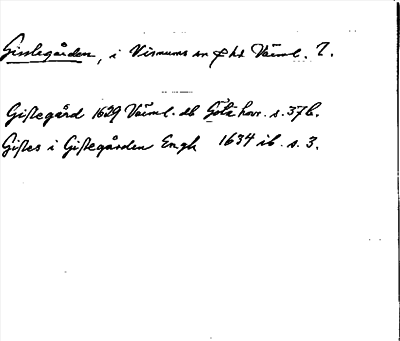 Gisslegården, i Visnums sn o hd Värml. l.
Gißlegård 1629 Värml. db Göta hovr. s. 37b.
Gißles i Gißlegården Engh 1634 ib. s. 3.